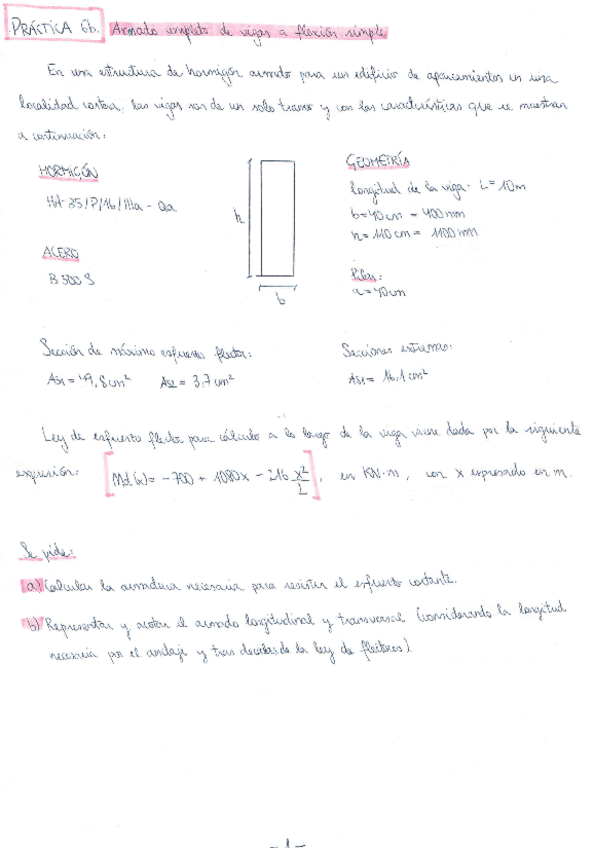 PRÁCTICA 6b. Armado completo de vigas a flexión simple
En una estructura de hormigón armado para un edificio de aparcamientos en una
localidad costera, las vigas son de un solo tramo y con las características que se muestran
a continuación:
HORMIGÓN
HA-35/P/16/IIIa-Qa
ACERO
B 500 S
h
b
GEOMETRÍA
longitud de la viga - L = 10m
b=40cm = 400mm
h=110cm = 1100mm
Pilar:
a=40cm
Sección de máximo esfuerzo flector:
As1 = 49,8cm² As2 = 3,7cm²
Secciones extremas:
As1 = 16,1cm²
Ley de esfuerzo flector para cálculo a lo largo de la viga viene dada por la siguiente
expresión: [Md(x) = -700 + 1080x - 216 x²/L], en KN·m, con x expresado en m.
Se pide:
a) Calcular la armadura necesaria para resistir el esfuerzo cortante.
b) Representar y acotar el armado longitudinal y transversal (considerando la longitud
necesaria por el anclaje y tras decalar la ley de flectores)
-1-